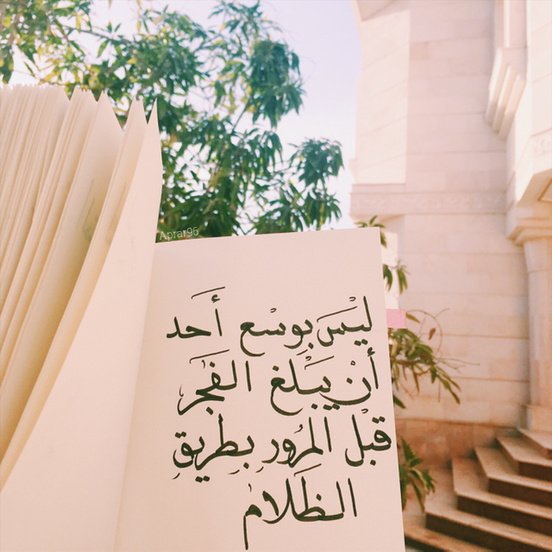 Aprar96
ليْسَ بِوسْع أَحد
أنْ يَبْلغ الفَجْر
قبْل المرُور بطريق
الظَلام